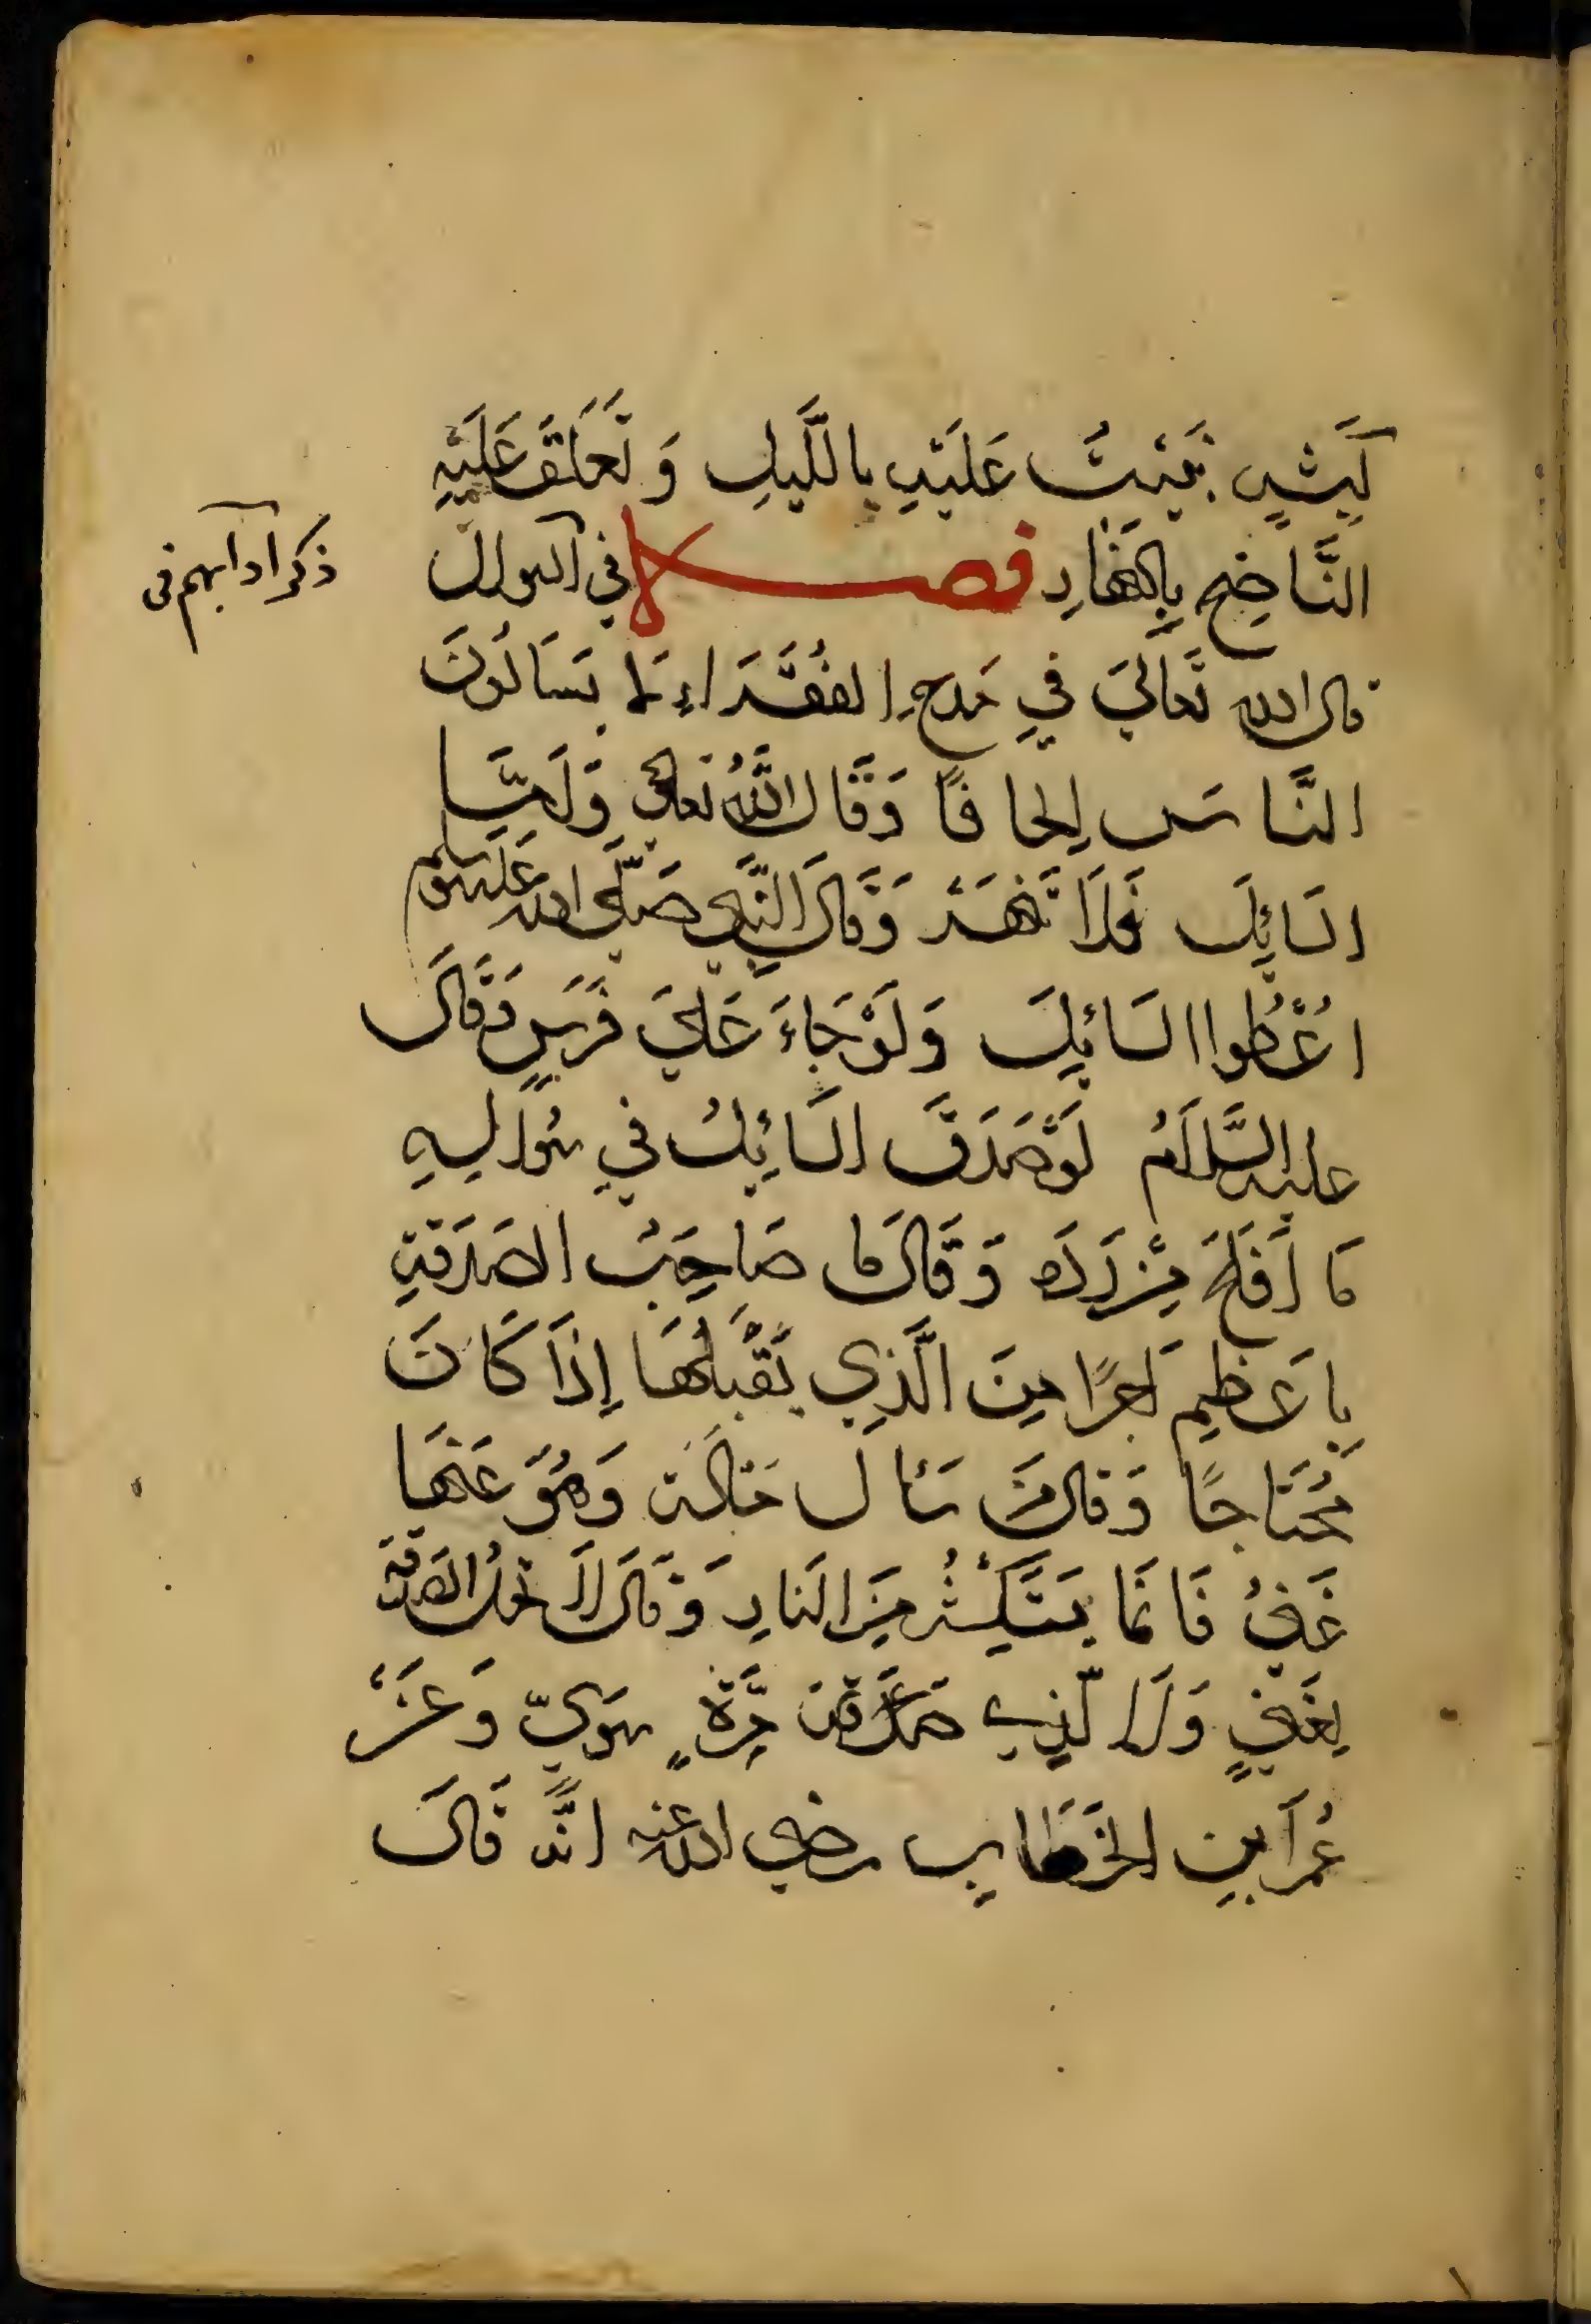 كبشٍ نبيتُ عَلَيْهِ بِاللَّيلِ وَ نَعلِفَ عَلَيْهِ
النَّاضِحَ بِالنَّهَارِ فصل في السوال
ذكر ادابهم فى
قال الله تَعَالَى في مَدحِ الفُقَرَاءِ لا يَسَالُونَ
النَّاسَ إلحافًا وَقَالَ اللهُ تعالى وَامَّا
السَائِلَ فَلَا تَنْهَرْ وَقَالَ النَّبِي صَلَّى الله عَلَيْهِ وسلم
اعْطُوا السَائِلَ وَلَوْ جَاءَ عَلَى فَرَسٍ وَقَالَ
عليه السَّلَامُ لَوْ صَدَقَ السَائِلُ فِي سُوالِهِ
مَا أَفلَحَ مَنْ رَدَّهُ وَقَالَ مَا صَاحِبُ الصَدَقَةِ
بِاَعظمِ اَجرًا مِنَ الَّذِي يَقْبَلُهَا إِذَا كَانَ
مُحْتَاجًا وَقالَ مَنْ سَئَالَ مَسْالَةً وَهُوَ عَنْهَا
غَنِيٌ فَانمَا يَسْتَكْثِرُ مِنَ النَارِ وَقَالَ لَا تحلُ الصَدقَةُ
لِغَنِيٍ وَلَا لذِي مِرَّةٍ سَوِيٍّ وَعَنْ
عُمَرَ ابْنِ الخَطَابِ رضي الله عنه انَّه قَالَ